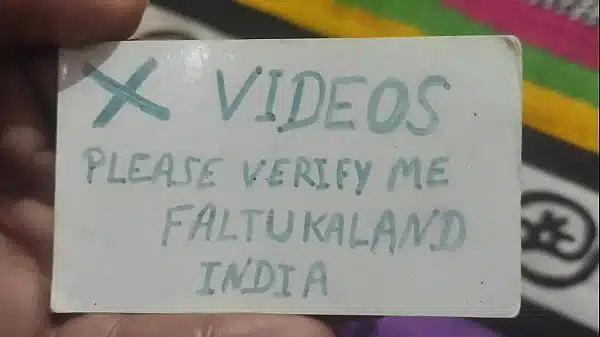 X VIDEOS
PLEASE VERIFY ME
FALTUKALAND
INDIA